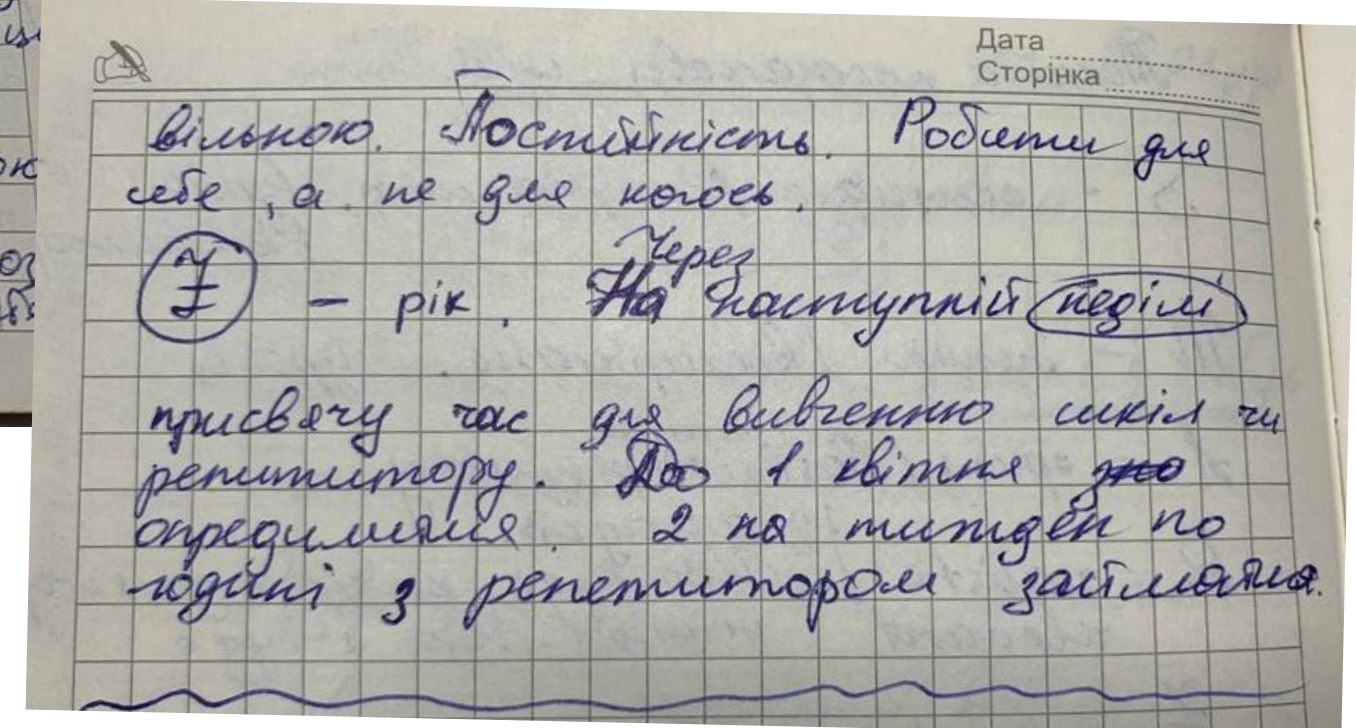 Дата
Сторінка
вільною. Постійність. Робити для
себе, а не для когось.
– рік. Через
На наступній неділі
присвячу час для вивченню шкіл чи
репетитору. До 1 квітня зно
опредилитися. 2 на тиждень по
годині з репетитором займатися.